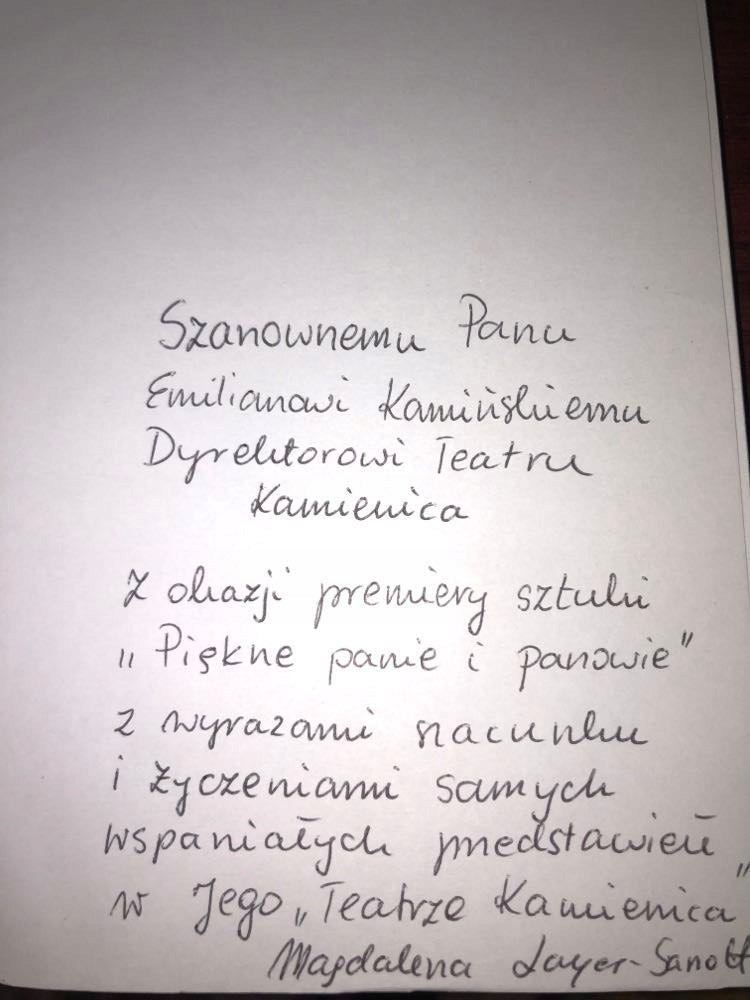 Szanownemu Panu
Emilianowi Kamińskiemu
Dyrektorowi Teatru
Kamienica
Z okazji premiery sztuki
„Piękne panie i panowie"
z wyrazami szacunku
i życzeniami samych
wspaniałych przedstawień
w Jego „Teatrze Kamienica"
Magdalena